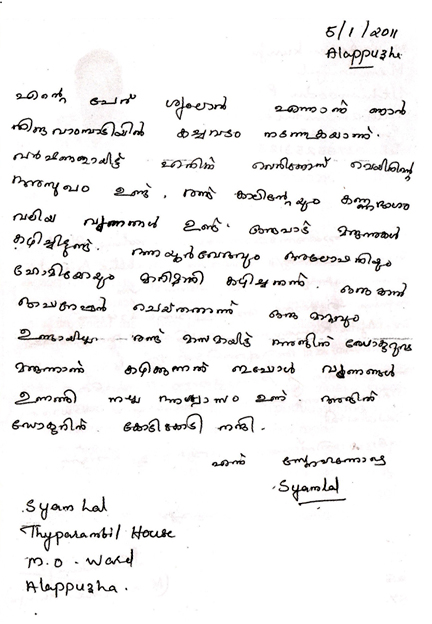 5/1/2011
Alappuzha
എന്റെ പേര് ശ്യാംലാൽ എന്നാണ് ഞാൻ
തിരുവാമ്പാടിയിൽ കച്ചവടം നടത്തുകയാണ്.
വർഷങ്ങളായിട്ട് എനിക്ക് വെരിക്കോസ് വെയിനിന്റെ
അസുഖം ഉണ്ട്, രണ്ട് കാലിന്റേയും കണ്ണഭാഗം
വലിയ വൃണങ്ങൾ ഉണ്ട്. ഒരുപാട് മരുന്നുകൾ
കഴിച്ചിട്ടുണ്ട്. ആയുർവേദവും അലോപ്പതിയും
ഹോമിയോയും മാറിമാറി കഴിച്ചതാണ്.
ഓപ്പറേഷൻ ചെയ്തതാണ് ഒരു മാറ്റവും
ഉണ്ടായില്ല. രണ്ട് മാസമായിട്ട്
മരുന്നാണ് കഴിക്കുന്നത് ഇപ്പോൾ വൃണങ്ങൾ
ഉണങ്ങി നല്ല ആശ്വാസം ഉണ്ട്. അതിൽ
ഡോക്ടറിന് കോടികോടി നന്ദി.
എന്ന് സ്നേഹത്തോടെ
Syamlal
Syam Lal
Thyparambil House
M.O. Ward
Alappuzha.